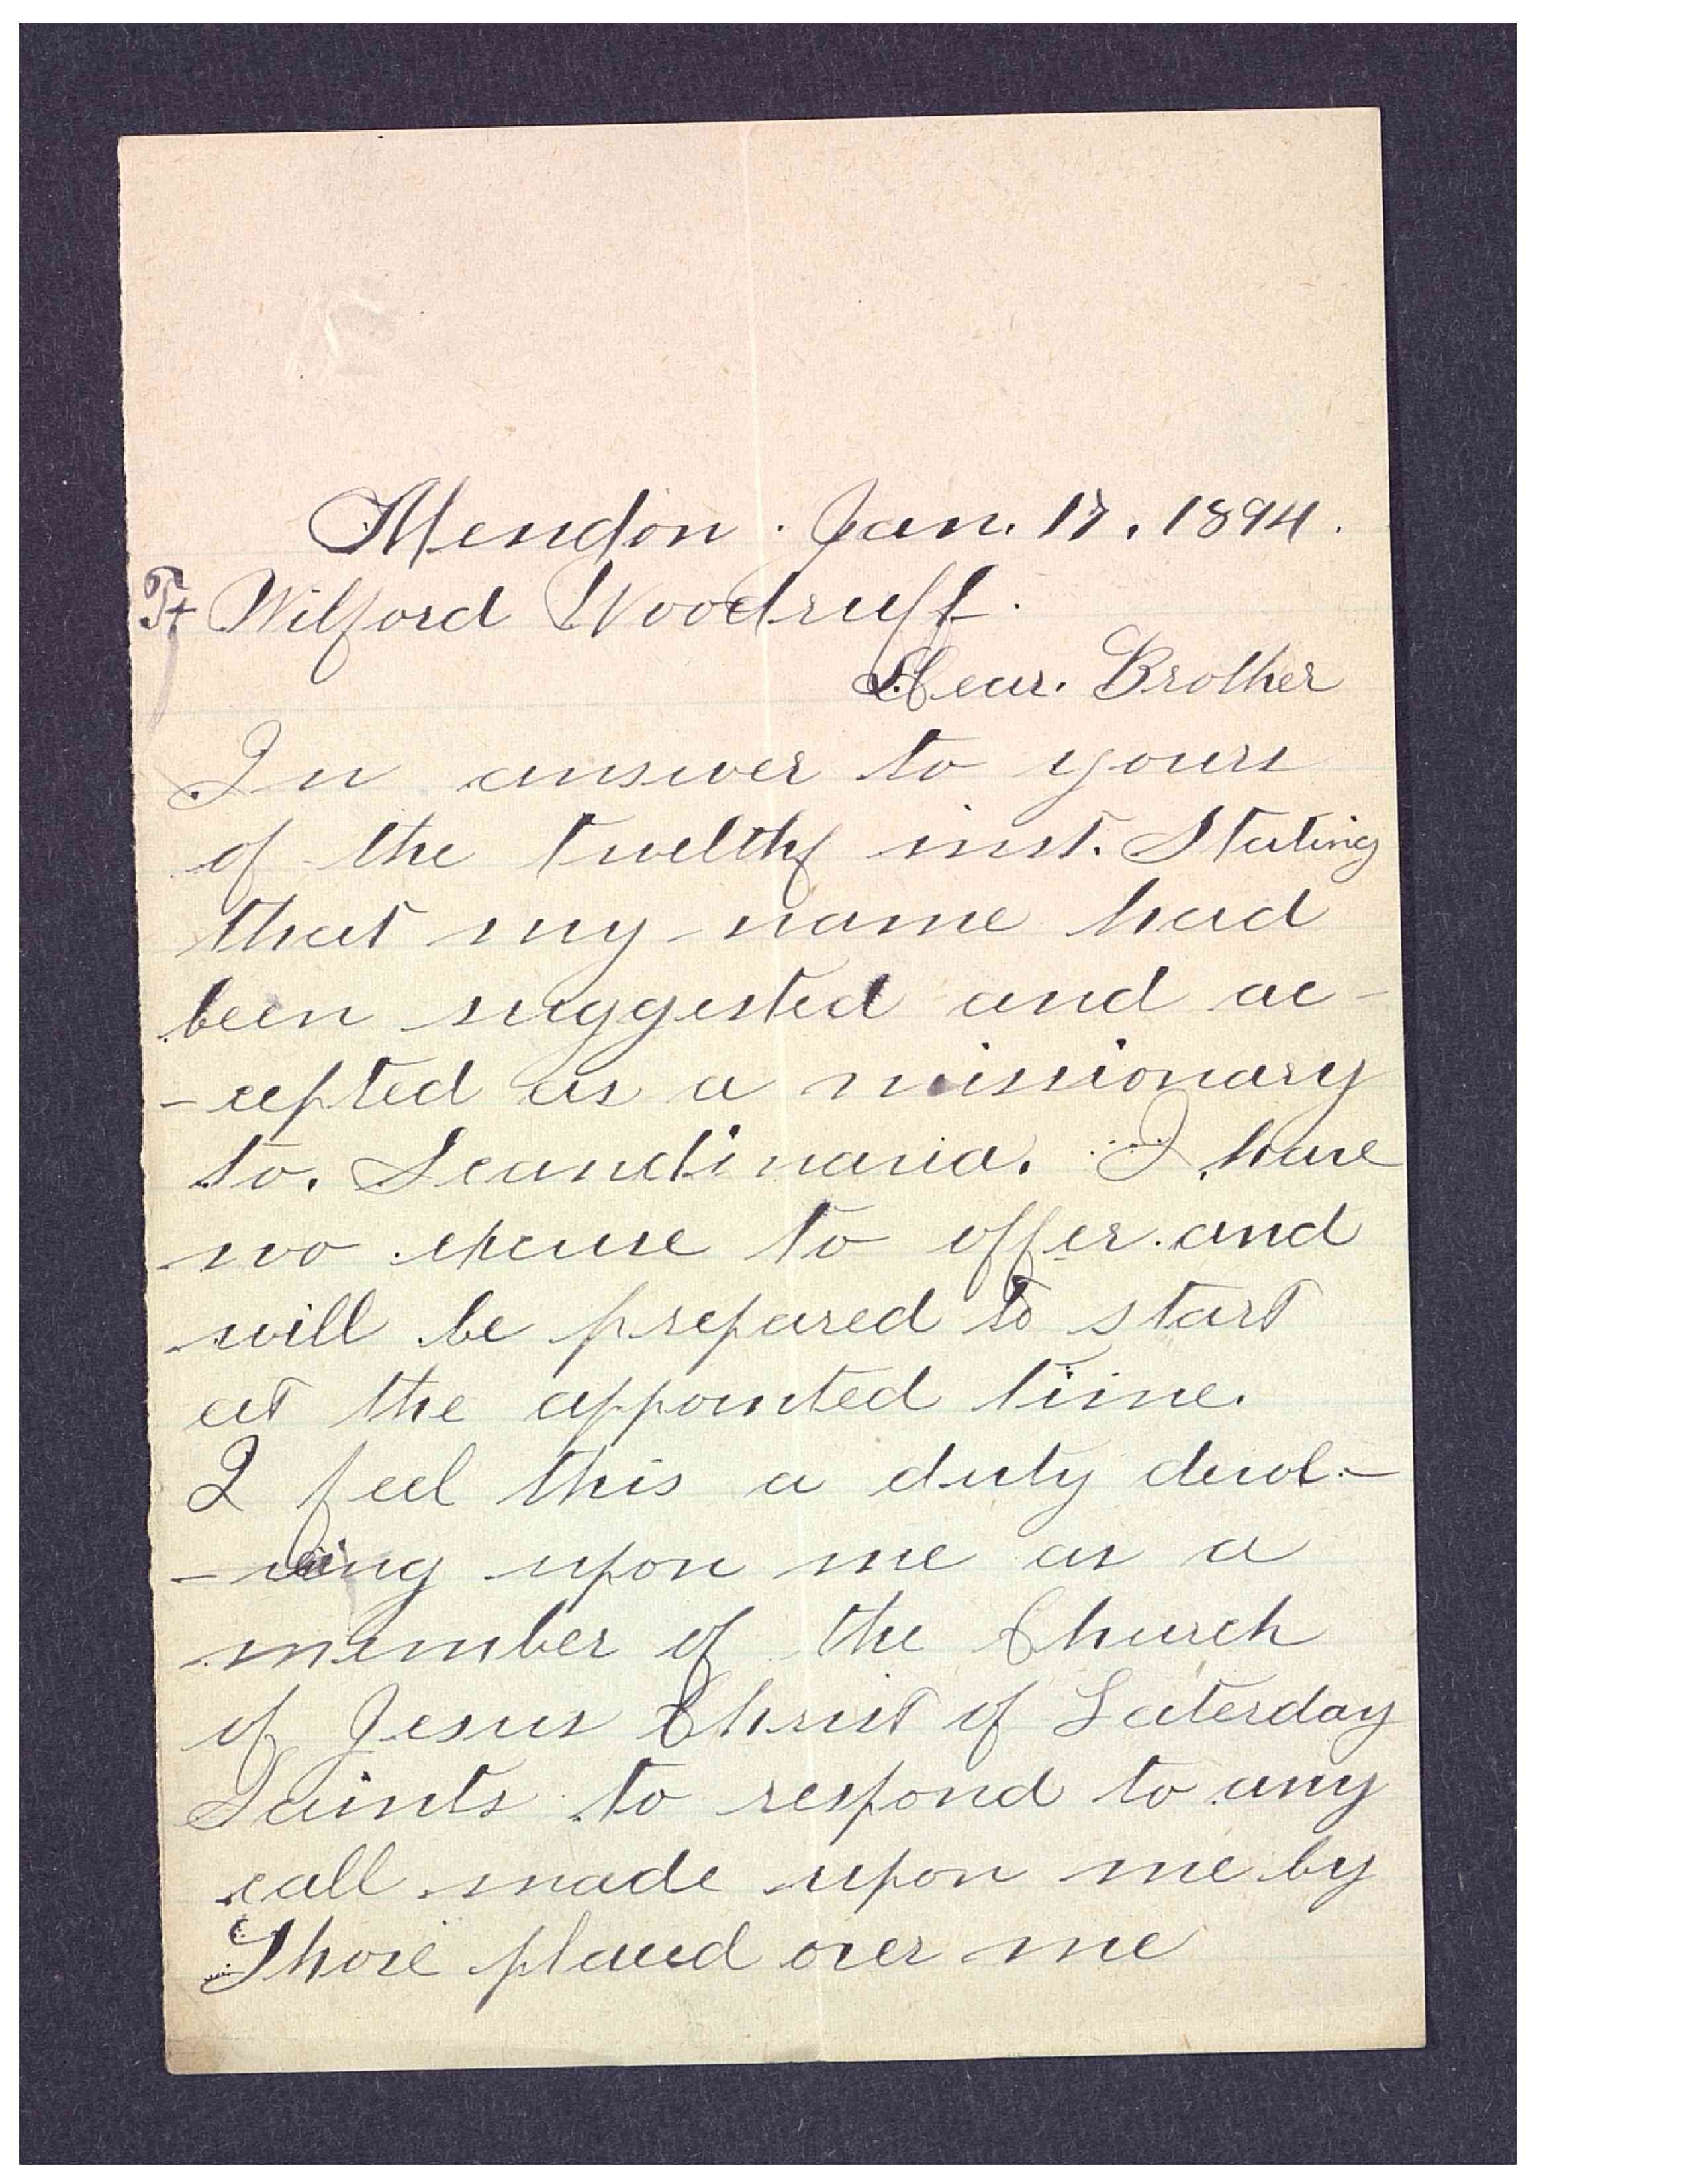 Mendon. Jan. 17. 1894.
Wilford Woodruff.
Dear. Brother
In answer to yours
of the twelthf inst. Stating
that my name had
been suggested and ac-
-cepted as a missionary
to. Scandinavia. I have
no excuse to offer. and
will be prepared to start
at the appointed time.
I feel this a duty devol-
-ving upon me as a
member of the Church
of Jesus Christ of Laterday
Saints to respond to any
call made upon me by
Those placed over me